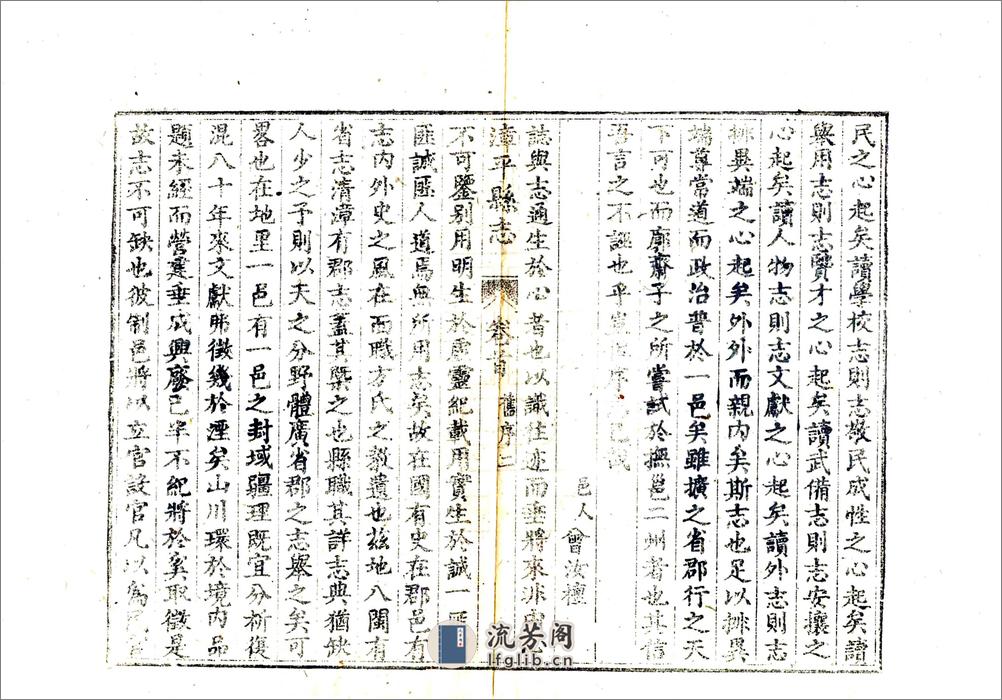 民之心起矣讀學校志則志敬民成性之心起矣讀
與用志則志賢才之心起矣讀武備志則志安攘之
心起矣讀人物志則志文獻之心起矣讀外志則志
排異端之心起矣外外而親內矣斯志也足以排異
端尊常道而政治普於一邑矣雖擴之省郡行之天
下可也而廓齋子之所嘗試於撫邕二州者也其信
吾言之不誣也乎
邑人曾汝檀
誌與志通生於心者也以識往迹而垂將來非
不可鑒別用明生於虛靈紀載用實生於誠一
匪誠匪人道焉無所用志矣故在國有史在郡邑有
志內外史之風在而職方氏之毅遺也茲地八閩有
省志清漳有郡志蓋其槩之也縣職其詳志典猶缺
人少之予則以天之分野體廣省郡之志舉之矣可
畧也在地里一邑有一邑之封域疆理既宜分析復
混八十年來文獻弗徵幾於湮矣山川環於境內品
題未經而營建垂成興廢已半不紀將於奚取徵是
故志不可缺也彼制邑將以立官設官凡以為
漳平縣志
卷首
舊序二
流芳阁
lfglib.cn